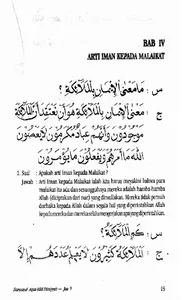 BAB IV
ARTI IMAN KEPADA MALAIKAT
س : مَا مَعْنَى الْإِيْمَانِ بِالْمَلَائِكَةِ ؟
ج : مَعْنَى الْإِيْمَانِ بِالْمَلَائِكَةِ هُوَ أَنْ تَعْتَقِدَ أَنَّ الْمَلَائِكَةَ
مَوْجُودُوْنَ وَأَنَّهُمْ عِبَادٌ مُكْرَمُوْنَ لَا يَعْصُوْنَ
اللهَ مَا أَمَرَهُمْ وَيَفْعَلُوْنَ مَا يُؤْمَرُوْنَ
1. Soal : Apakah arti Iman kepada Malaikat ?
Jawab : Arti Iman kepada Malaikat ialah kita harus meyakini bahwa para
malaikat itu ada dan sesungguhnya mereka adalah hamba-hamba
Allah (diciptakan dari nur) yang dimuliakan. Mereka tidak pernah
durhaka kepada Allah dalam segala hal yang diperintahkan Allah
kepada mereka dan mereka selalu mengerjakan apa yang diperintahkan.
س : كَمِ الْمَلَائِكَةُ ؟
ج : الْمَلَائِكَةُ كَثِيْرُوْنَ لَا يَعْلَمُ عَدَدَهُمْ إِلَّا
15